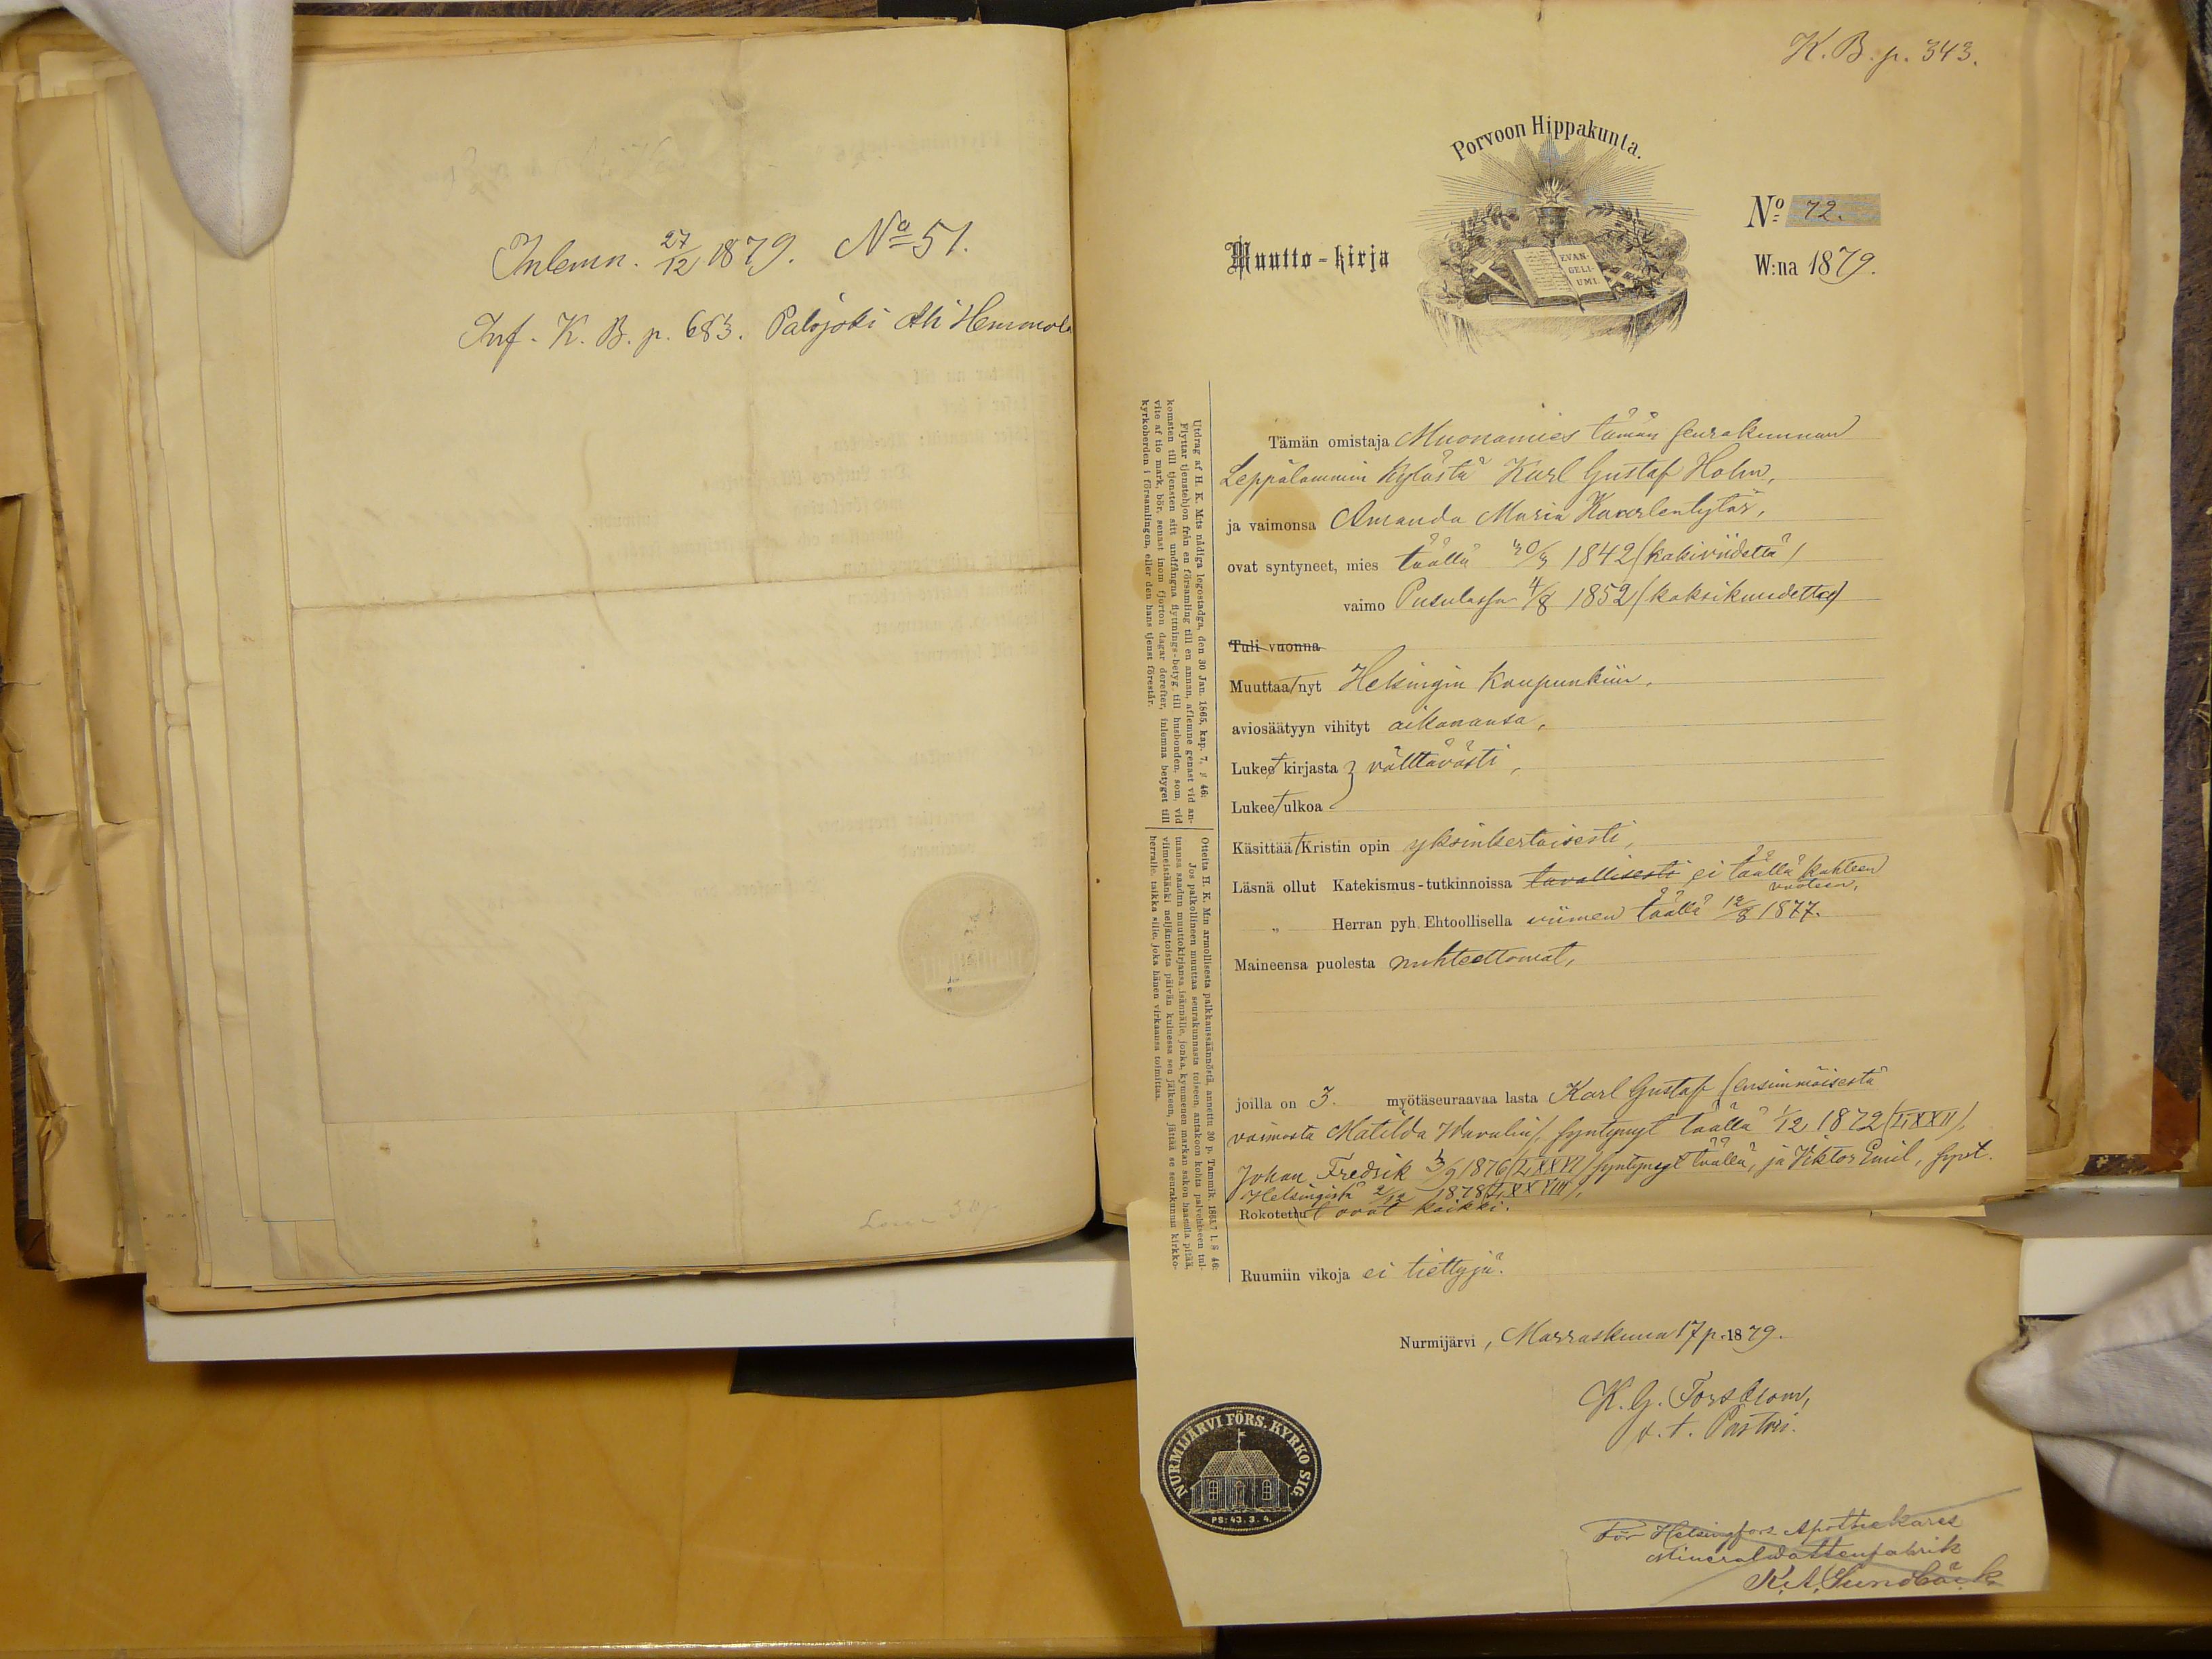 Inlemn. 27/12 1879. No 51.
Inf. K. B. p. 683. Palojoki Ali Hemmola
K. B. p. 343.
Porvoon Hippakunta.
EVAN-
GELI-
UMI.
No 72.
Muutto-kirja
W:na 1879.
Utdrag af H. K. M:ts nådiga legostadga, den 30 Jan. 1865, kap. 7, § 46:
Flyttar tjenstehjon från en församling till en annan, aflemne genast vid an-
komsten till tjensten sitt undfångna flyttnings-betyg till husbonden, som, vid
vite af tio mark, bör, senast inom fjorton dagar derefter, inlemna betyget till
kyrkoherden i församlingen, eller den hans tjenst förestår.
Otteita H. K. M:n armollisesta palkkaussäännöstä, annettu 30 p. Tammik. 1865, 7 l. § 46:
Jos palkollineen muuttaa seurakunnasta toiseen, antakoon kohta palvelukseen tul-
tuansa saadun muuttokirjansa isännälle, jonka, kymmenen markan sakon haastolla pitää,
viimeistäänki neljäntoista päivän kuluessa sen jälkeen, jättää se seurakunnan kirkko-
herralle, taikka sille, joka hänen virkaansa toimittaa.
Tämän omistaja Muonamies tämän seurakunnan
Leppälammin kylästä Karl Gustaf Holm,
ja vaimonsa Amanda Maria Kaarlentytär,
ovat syntyneet, mies täällä 1842 (kakiviidettä)
vaimo Pusulassa 4/8 1852 (kaksikuudetta)
Tuli vuonna
Muuttaat nyt Helsingin kaupunkiin.
aviosäätyyn vihityt aikanansa,
Lukeet kirjasta } välttävästi,
Lukeet ulkoa
Käsittäät Kristin opin yksinkertaisesti,
Läsnä ollut Katekismus-tutkinnoissa tavallisesti ei täällä kahteen
vuoteen,
„ Herran pyh. Ehtoollisella viimen täällä 12/8 1877.
Maineensa puolesta nuhteettomat,
joilla on 3. myötäseuraavaa lasta Karl Gustaf (ensimmäisestä
vaimosta Matilda Wavulin), syntynyt täällä 1/12 1872 (LXXII),
Johan Fredrik 1876 (LXXVI) syntynyt täällä, ja Viktor Emil, synt.
Helsingistä 2/12 1878 (LXXVIII),
Rokotettut ovat kaikki.
Ruumiin vikoja ei tiettyjä.
Nurmijärvi, Marraskuun 17 p. 1879.
K. G. Forsblom,
v. t. Pastori.
NURMIJÄRVI FÖRS. KYRKO SIG.
PS: 43. 3. 4.
För Helsingfors Apothekares
Mineralvattenfabrik
K. A. Sundbäck